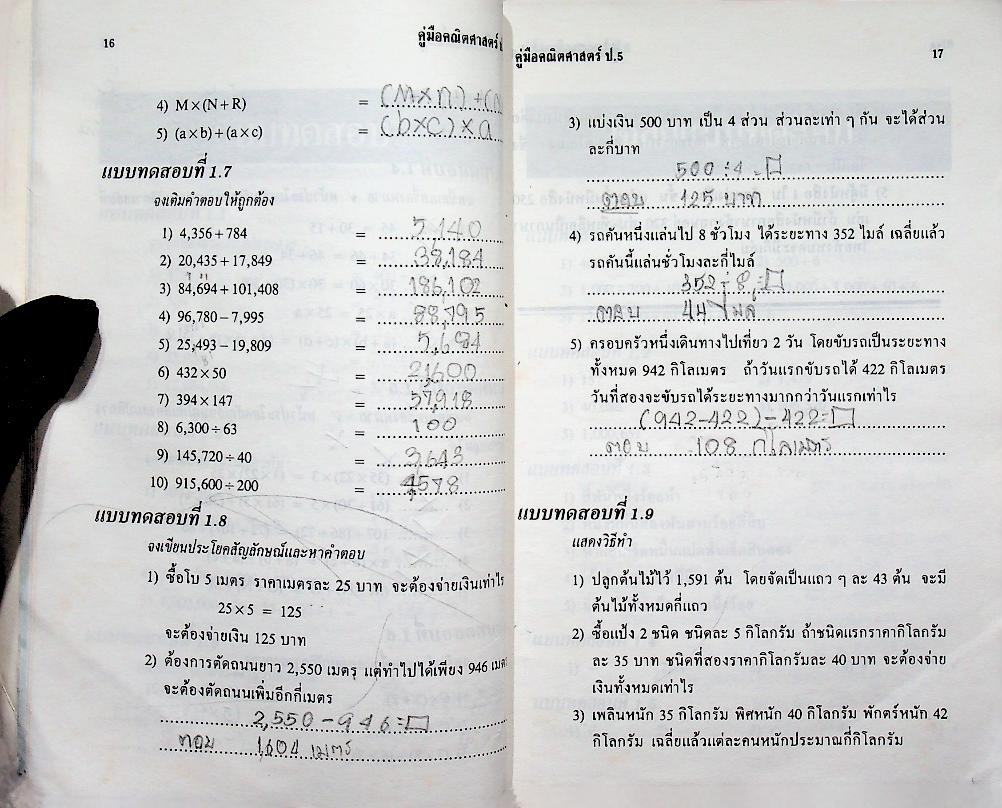 16
คู่มือคณิตศาสตร์ ป
4) M×(N+R) = (M×N)+(
5) (a×b)+(a×c) = (b×c)×a
แบบทดสอบที่ 1.7
จงเติมคำตอบให้ถูกต้อง
1) 4,356+784 = 5,140
2) 20,435+17,849 = 38,184
3) 84,694+101,408 = 186,102
4) 96,780−7,995 = 88,795
5) 25,493−19,809 = 5,684
6) 432×50 = 21600
7) 394×147 = 57,918
8) 6,300÷63 = 100
9) 145,720÷40 = 3,643
10) 915,600÷200 = 4578
แบบทดสอบที่ 1.8
จงเขียนประโยคสัญลักษณ์และหาคำตอบ
1) ซื้อโบ 5 เมตร ราคาเมตรละ 25 บาท จะต้องจ่ายเงินเท่าไร
25×5 = 125
จะต้องจ่ายเงิน 125 บาท
2) ต้องการตัดถนนยาว 2,550 เมตร แต่ทำไปได้เพียง 946 เมต
จะต้องตัดถนนเพิ่มอีกกี่เมตร
2,550−946=□
ตอบ 1604 เมตร
คู่มือคณิตศาสตร์ ป.5
17
3) แบ่งเงิน 500 บาท เป็น 4 ส่วน ส่วนละเท่า ๆ กัน จะได้ส่วน
ละกี่บาท
500÷4=□
ตอบ 125 บาท
4) รถคันหนึ่งแล่นไป 8 ชั่วโมง ได้ระยะทาง 352 ไมล์ เฉลี่ยแล้ว
รถคันนี้แล่นชั่วโมงละกี่ไมล์
352÷8=□
ตอบ 44 ไมล์
5) ครอบครัวหนึ่งเดินทางไปเที่ยว 2 วัน โดยขับรถเป็นระยะทาง
ทั้งหมด 942 กิโลเมตร ถ้าวันแรกขับรถได้ 422 กิโลเมตร
วันที่สองจะขับรถได้ระยะทางมากกว่าวันแรกเท่าไร
(942−422)−422=□
ตอบ 108 กิโลเมตร
แบบทดสอบที่ 1.9
แสดงวิธีทำ
1) ปลูกต้นไม้ไว้ 1,591 ต้น โดยจัดเป็นแถว ๆ ละ 43 ต้น จะมี
ต้นไม้ทั้งหมดกี่แถว
2) ซื้อแป้ง 2 ชนิด ชนิดละ 5 กิโลกรัม ถ้าชนิดแรกราคากิโลกรัม
ละ 35 บาท ชนิดที่สองราคากิโลกรัมละ 40 บาท จะต้องจ่าย
เงินทั้งหมดเท่าไร
3) เพลินหนัก 35 กิโลกรัม พิศหนัก 40 กิโลกรัม พักตร์หนัก 42
กิโลกรัม เฉลี่ยแล้วแต่ละคนหนักประมาณกี่กิโลกรัม